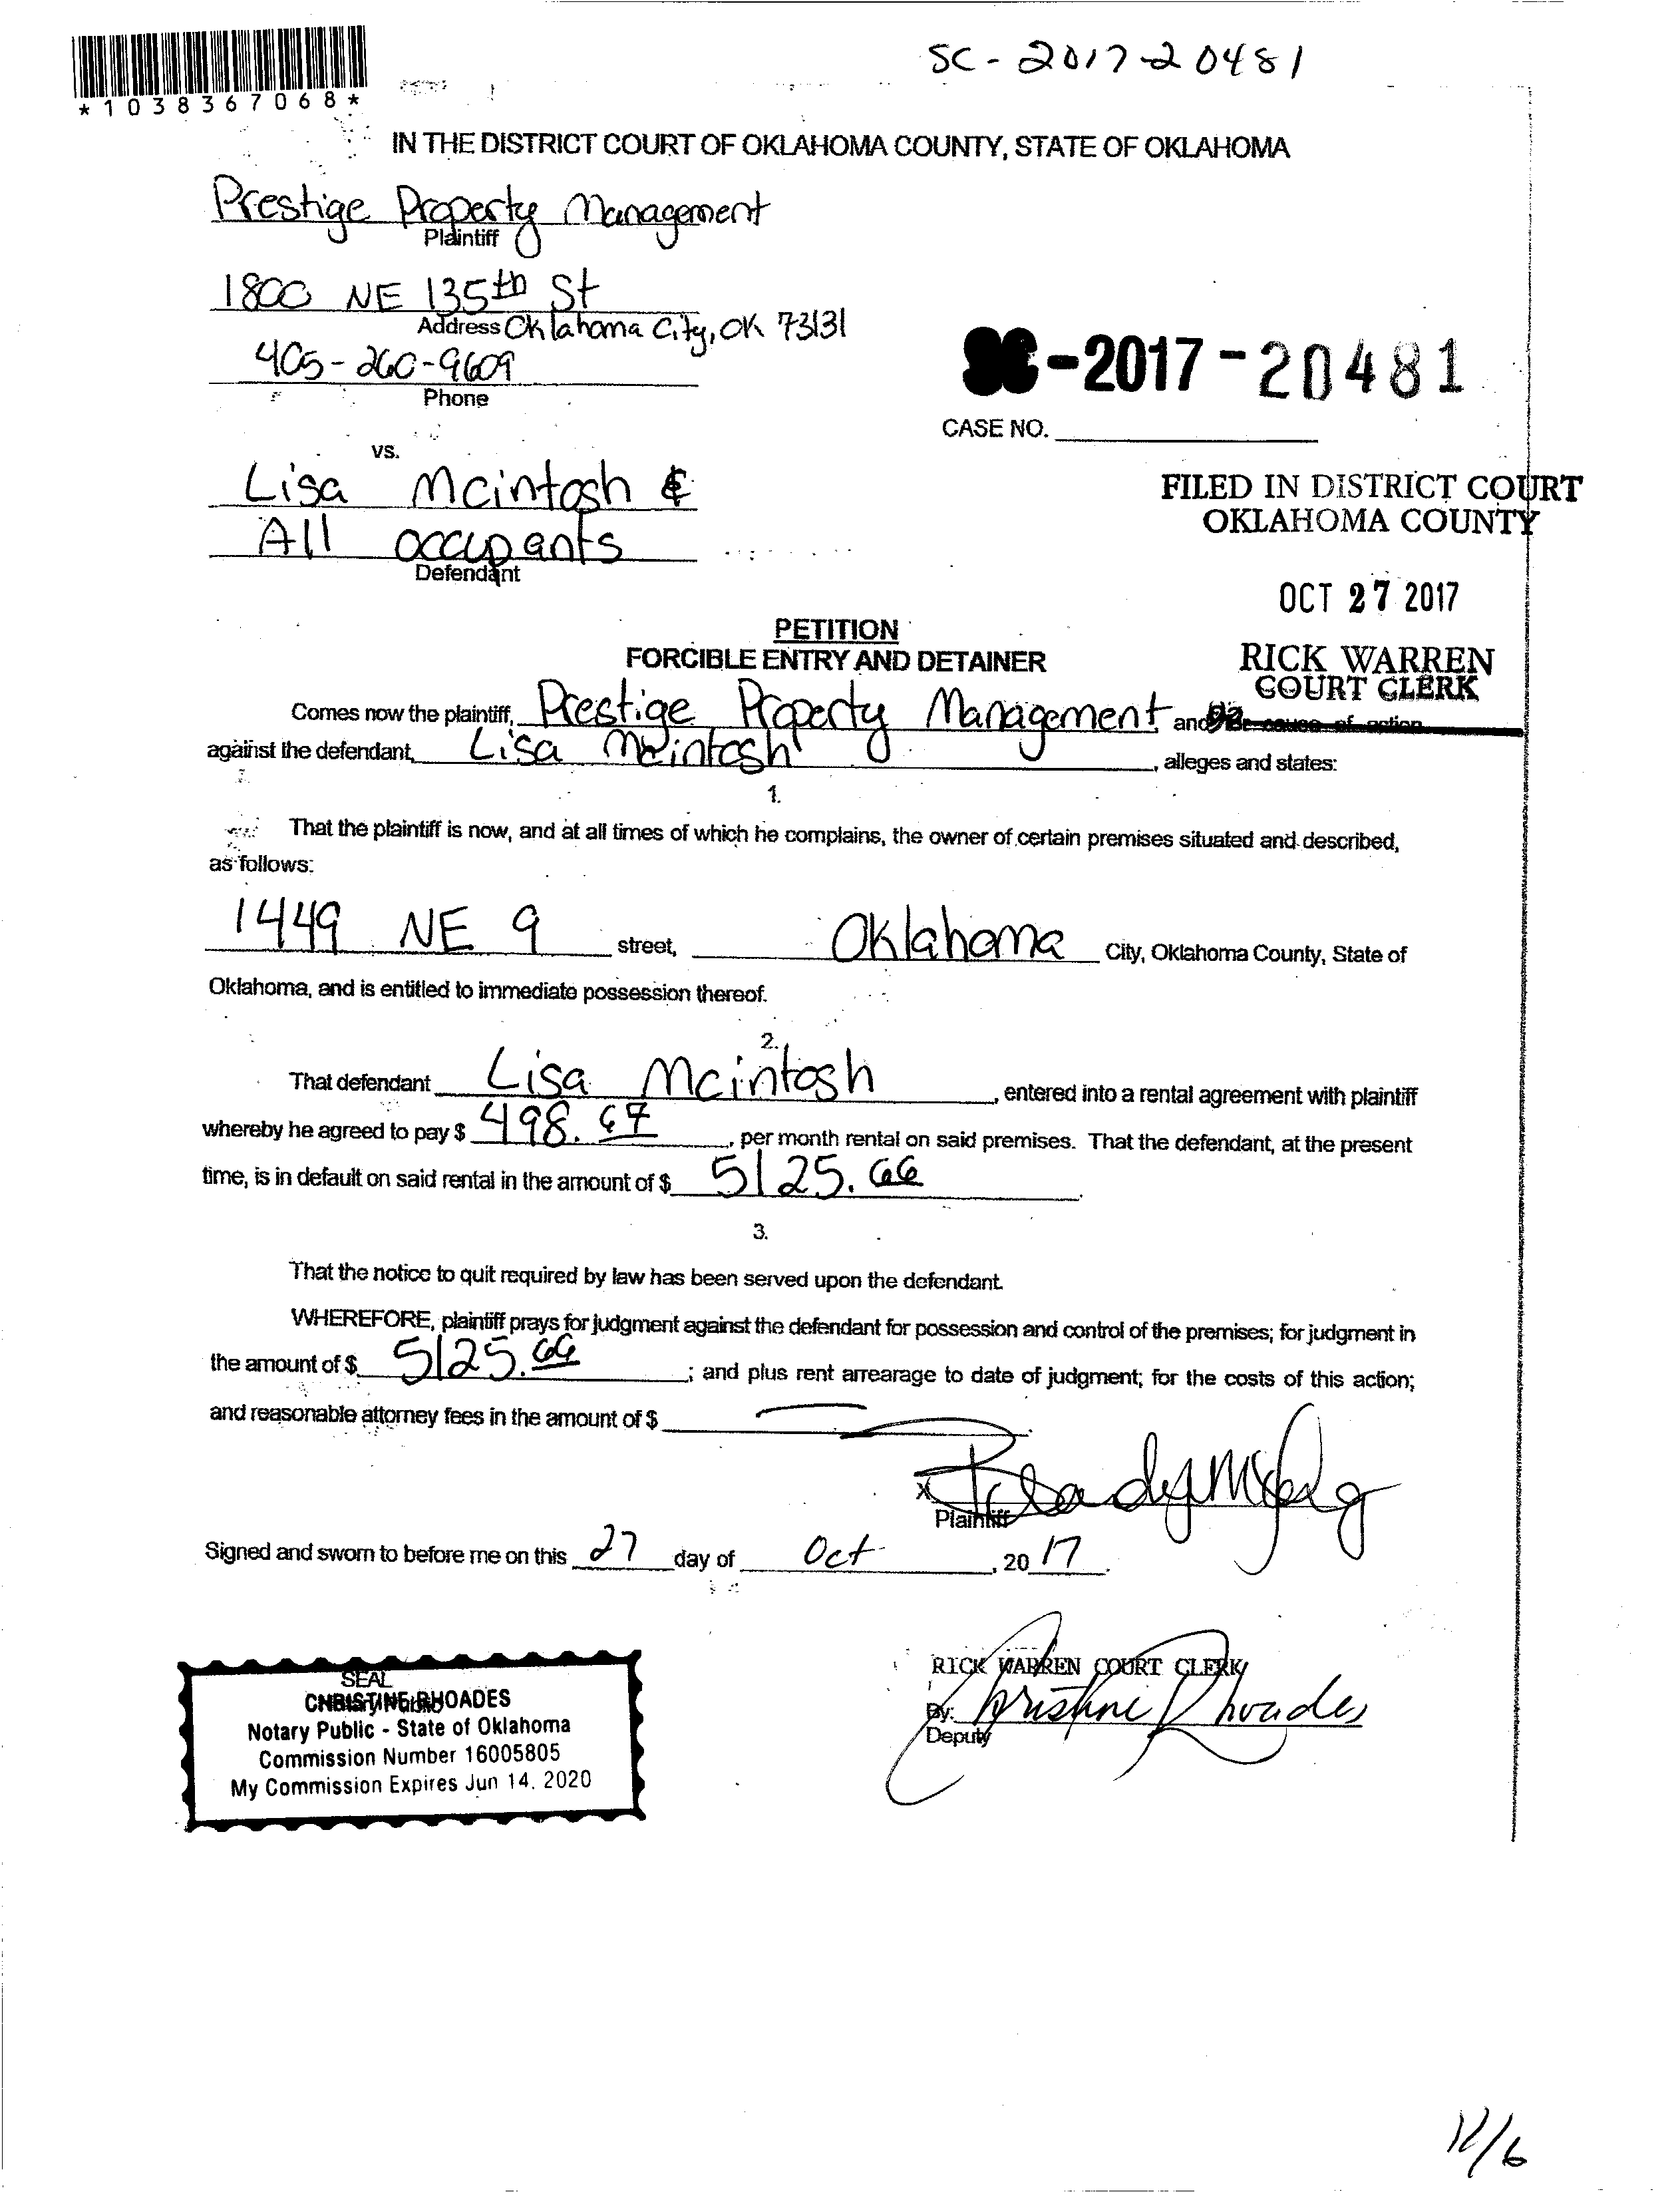 SC-2017-20481
*1038367068*
IN THE DISTRICT COURT OF OKLAHOMA COUNTY, STATE OF OKLAHOMA
Prestige Property Management
Plaintiff
1800 NE 135th St
Address Oklahoma City, OK 73131
405-260-9609
Phone
SC-2017-20481
CASE NO.
vs.
Lisa Mcintosh &
All occupants
Defendant
FILED IN DISTRICT COURT
OKLAHOMA COUNTY
OCT 27 2017
RICK WARREN
COURT CLERK
PETITION
FORCIBLE ENTRY AND DETAINER
Comes now the plaintiff, Prestige Property Management, and for cause of action
against the defendant, Lisa Mcintosh, alleges and states:
1.
That the plaintiff is now, and at all times of which he complains, the owner of certain premises situated and described,
as follows:
1449 NE 9 street, Oklahoma City, Oklahoma County, State of
Oklahoma, and is entitled to immediate possession thereof.
2.
That defendant Lisa Mcintosh, entered into a rental agreement with plaintiff
whereby he agreed to pay $ 498.67, per month rental on said premises. That the defendant, at the present
time, is in default on said rental in the amount of $ 5125.66.
3.
That the notice to quit required by law has been served upon the defendant.
WHEREFORE, plaintiff prays for judgment against the defendant for possession and control of the premises; for judgment in
the amount of $ 5125.66; and plus rent arrearage to date of judgment; for the costs of this action;
and reasonable attorney fees in the amount of $ .
X
Plaintiff
Signed and sworn to before me on this 27 day of Oct, 2017.
SEAL
CHRISTINE RHOADES
Notary Public - State of Oklahoma
Commission Number 16005805
My Commission Expires Jun 14, 2020
RICK WARREN COURT CLERK
By: Christine Rhoades
Deputy
11/6